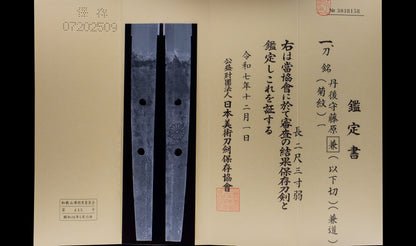 保存
07202509
No 3038158
鑑定書
一、刀 銘 丹後守藤原兼(以下切)(兼道)
(菊紋)一
長 二尺三寸弱
右は當協會に於て審査の結果保存刀剣と
鑑定しこれを証する
令和七年十二月一日
公益財團法人日本美術刀劍保存協會